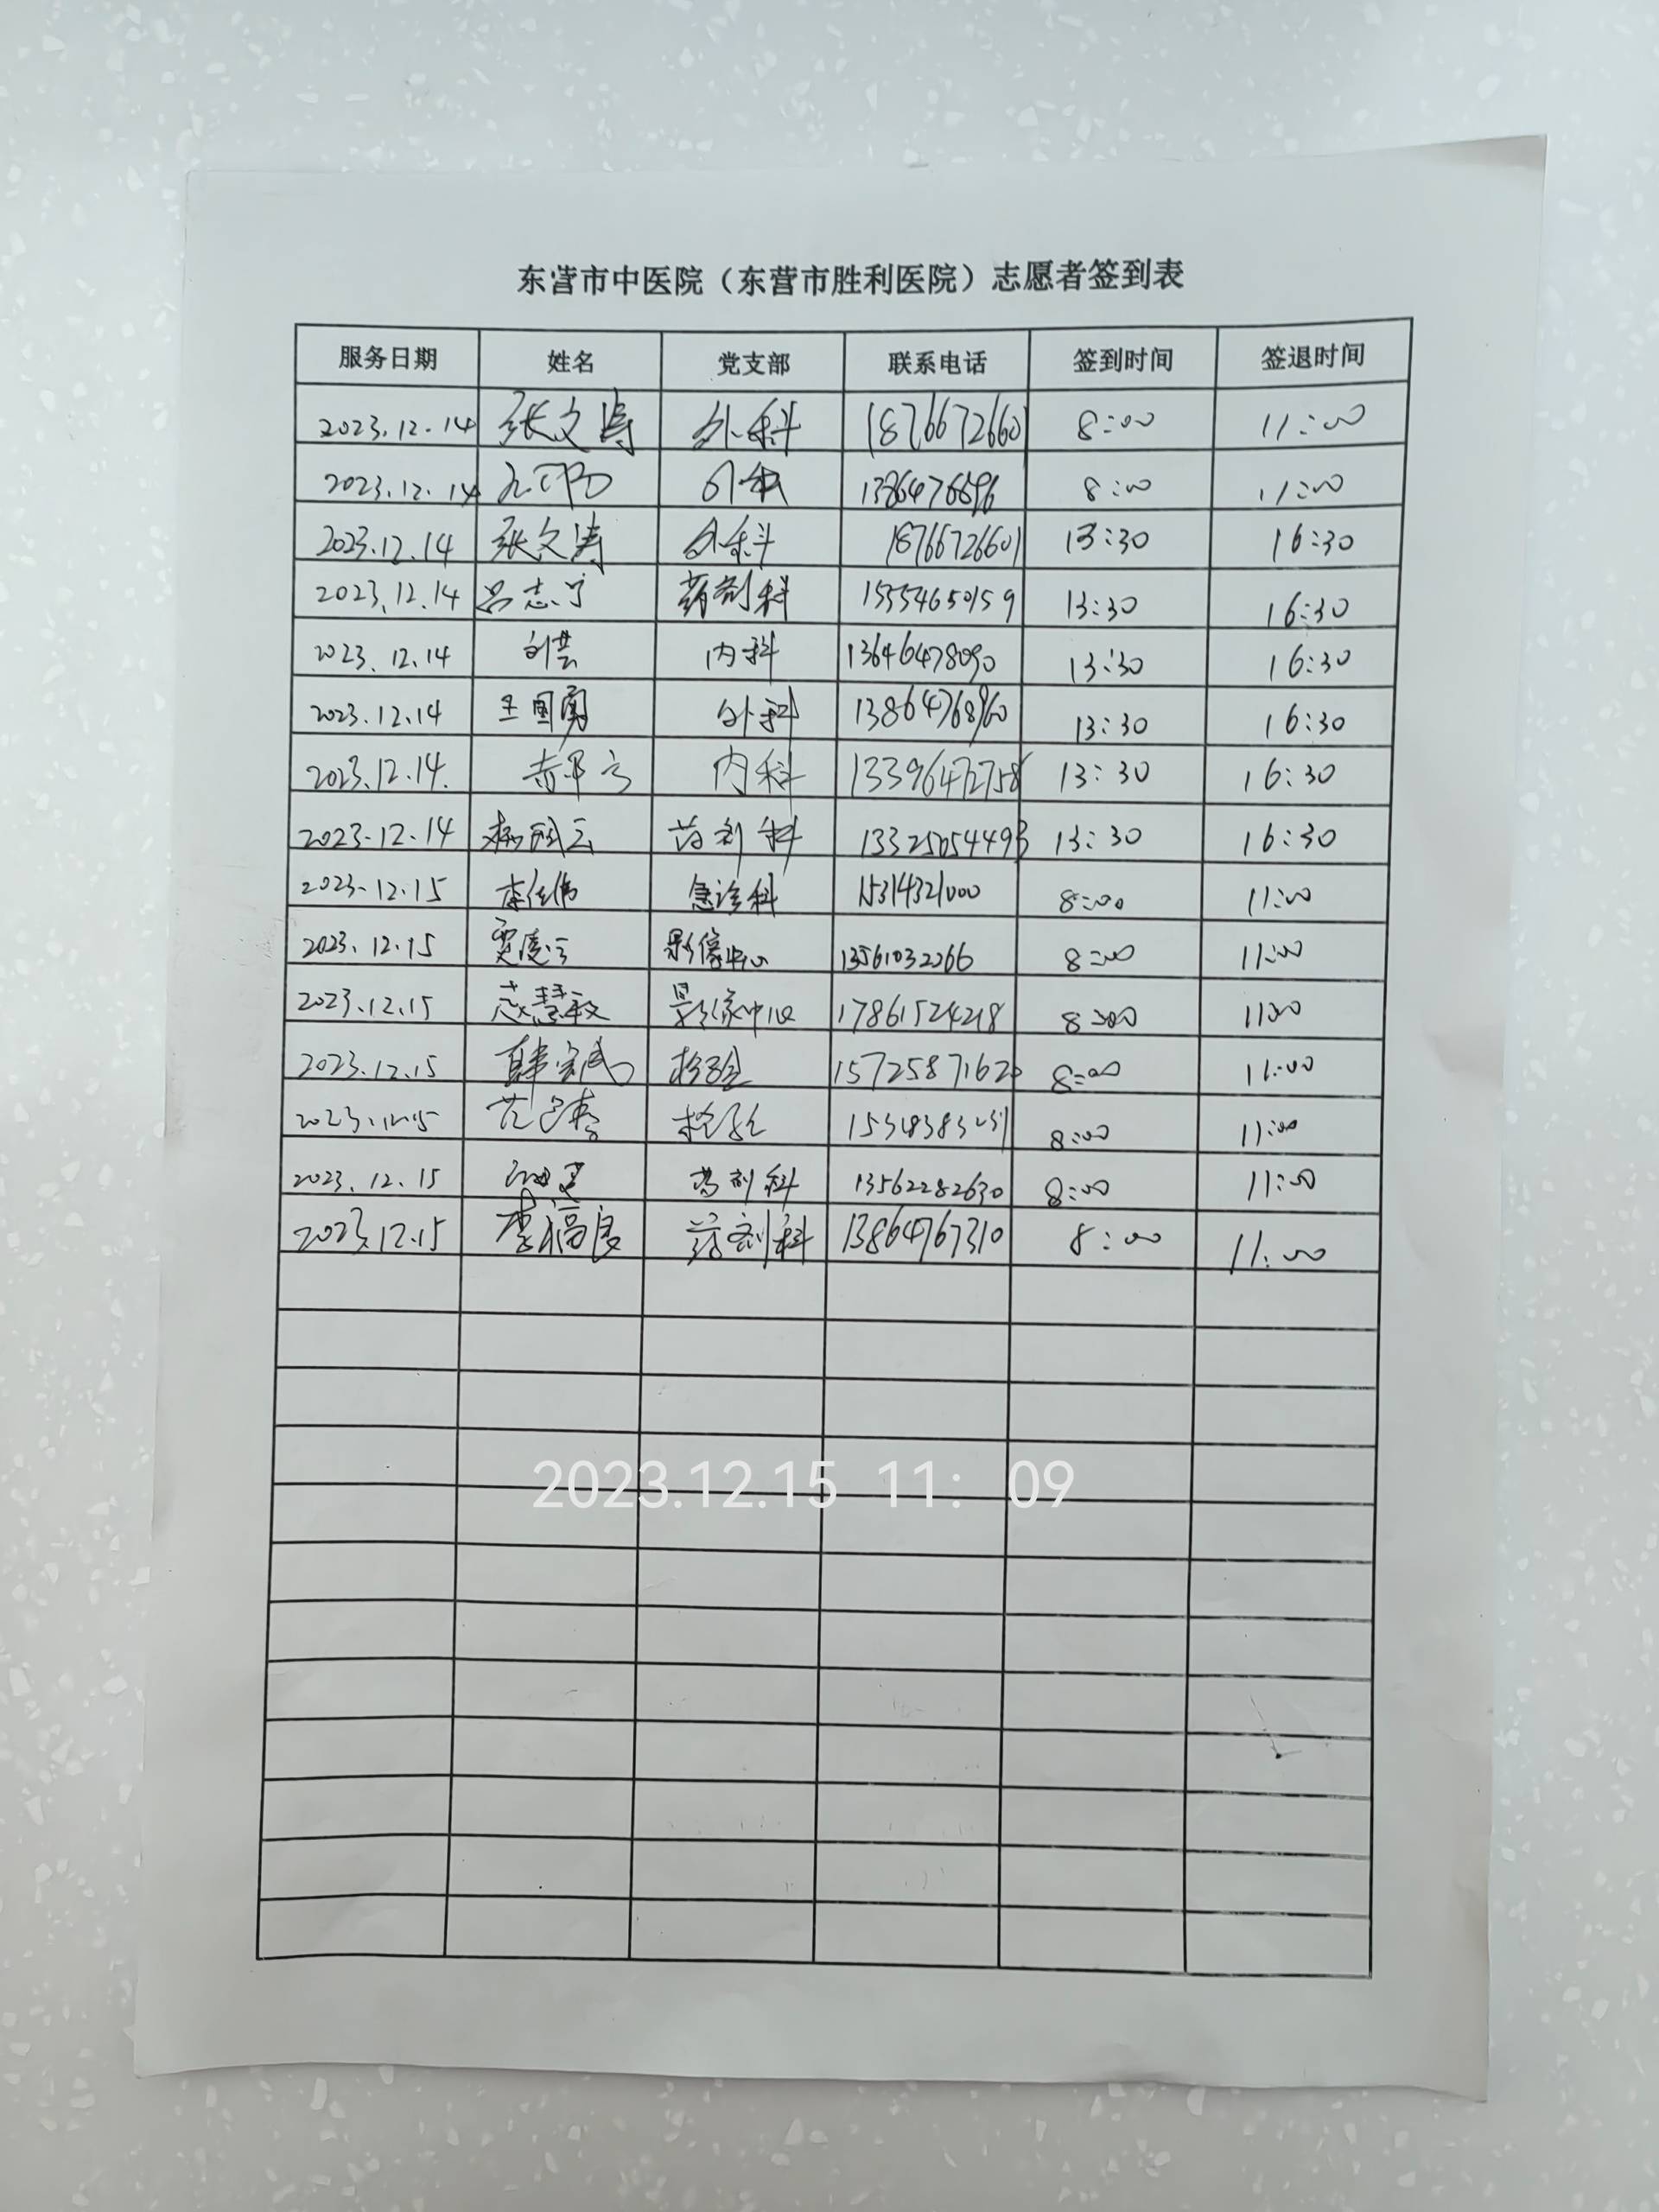 东营市中医院（东营市胜利医院）志愿者签到表
服务日期 姓名 党支部 联系电话 签到时间 签退时间
2023.12.14 张文涛 外科 1876672660 8:00 11:00
2023.12.14 外科 8:00 11:00
2023.12.14 张文涛 外科 18766726601 13:30 16:30
2023.12.14 吕志宁 药剂科 15554650159 13:30 16:30
2023.12.14 刘芸 内科 13646478090 13:30 16:30
2023.12.14 王国勇 外科 13864768960 13:30 16:30
2023.12.14. 内科 13396472758 13:30 16:30
2023.12.14 药剂科 13325054493 13:30 16:30
2023.12.15 急诊科 15314321000 8:00 11:00
2023.12.15 影像中心 13561032066 8:00 11:00
2023.12.15 慧敏 影像中心 17861524218 8:00 11:00
2023.12.15 检验 15725871620 8:00 11:00
2023.12.15 检验 8:00 11:00
2023.12.15 药剂科 13562282630 8:00 11:00
2023.12.15 李福良 药剂科 13864767310 8:00 11:00
2023.12.15 11: 09